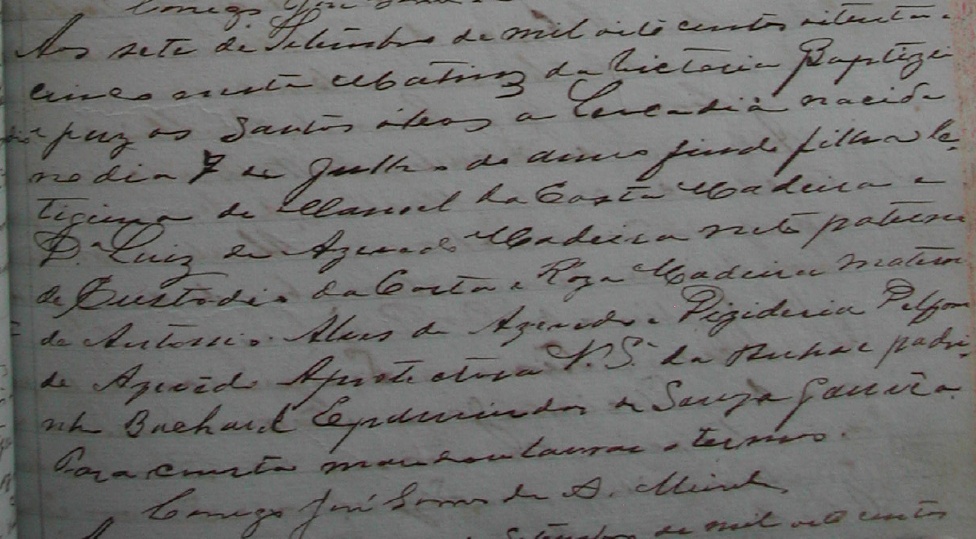 Conego José
Aos sete de Setembro de mil oito centos oitenta e
cinco nesta Matriz da Victoria Baptizei
e puz os Santos oleos a Leocadia nacida
no dia 7 de Julho do anno findo filha le-
tigima de Manoel da Costa Madeira e
D.ª Luiz de Azevedo Madeira neto paterno
de Custodio da Costa e Roza Madeira materno
de Antonio Alves de Azevedo e
de Azevedo Aprotectora N. S.ª da padri-
nho Bacharel Epaminondas de Souza Gouvêia.
Para constar mandou lavrar o termo.
Conego José Gomes de A.
Setembro de mil oito centos